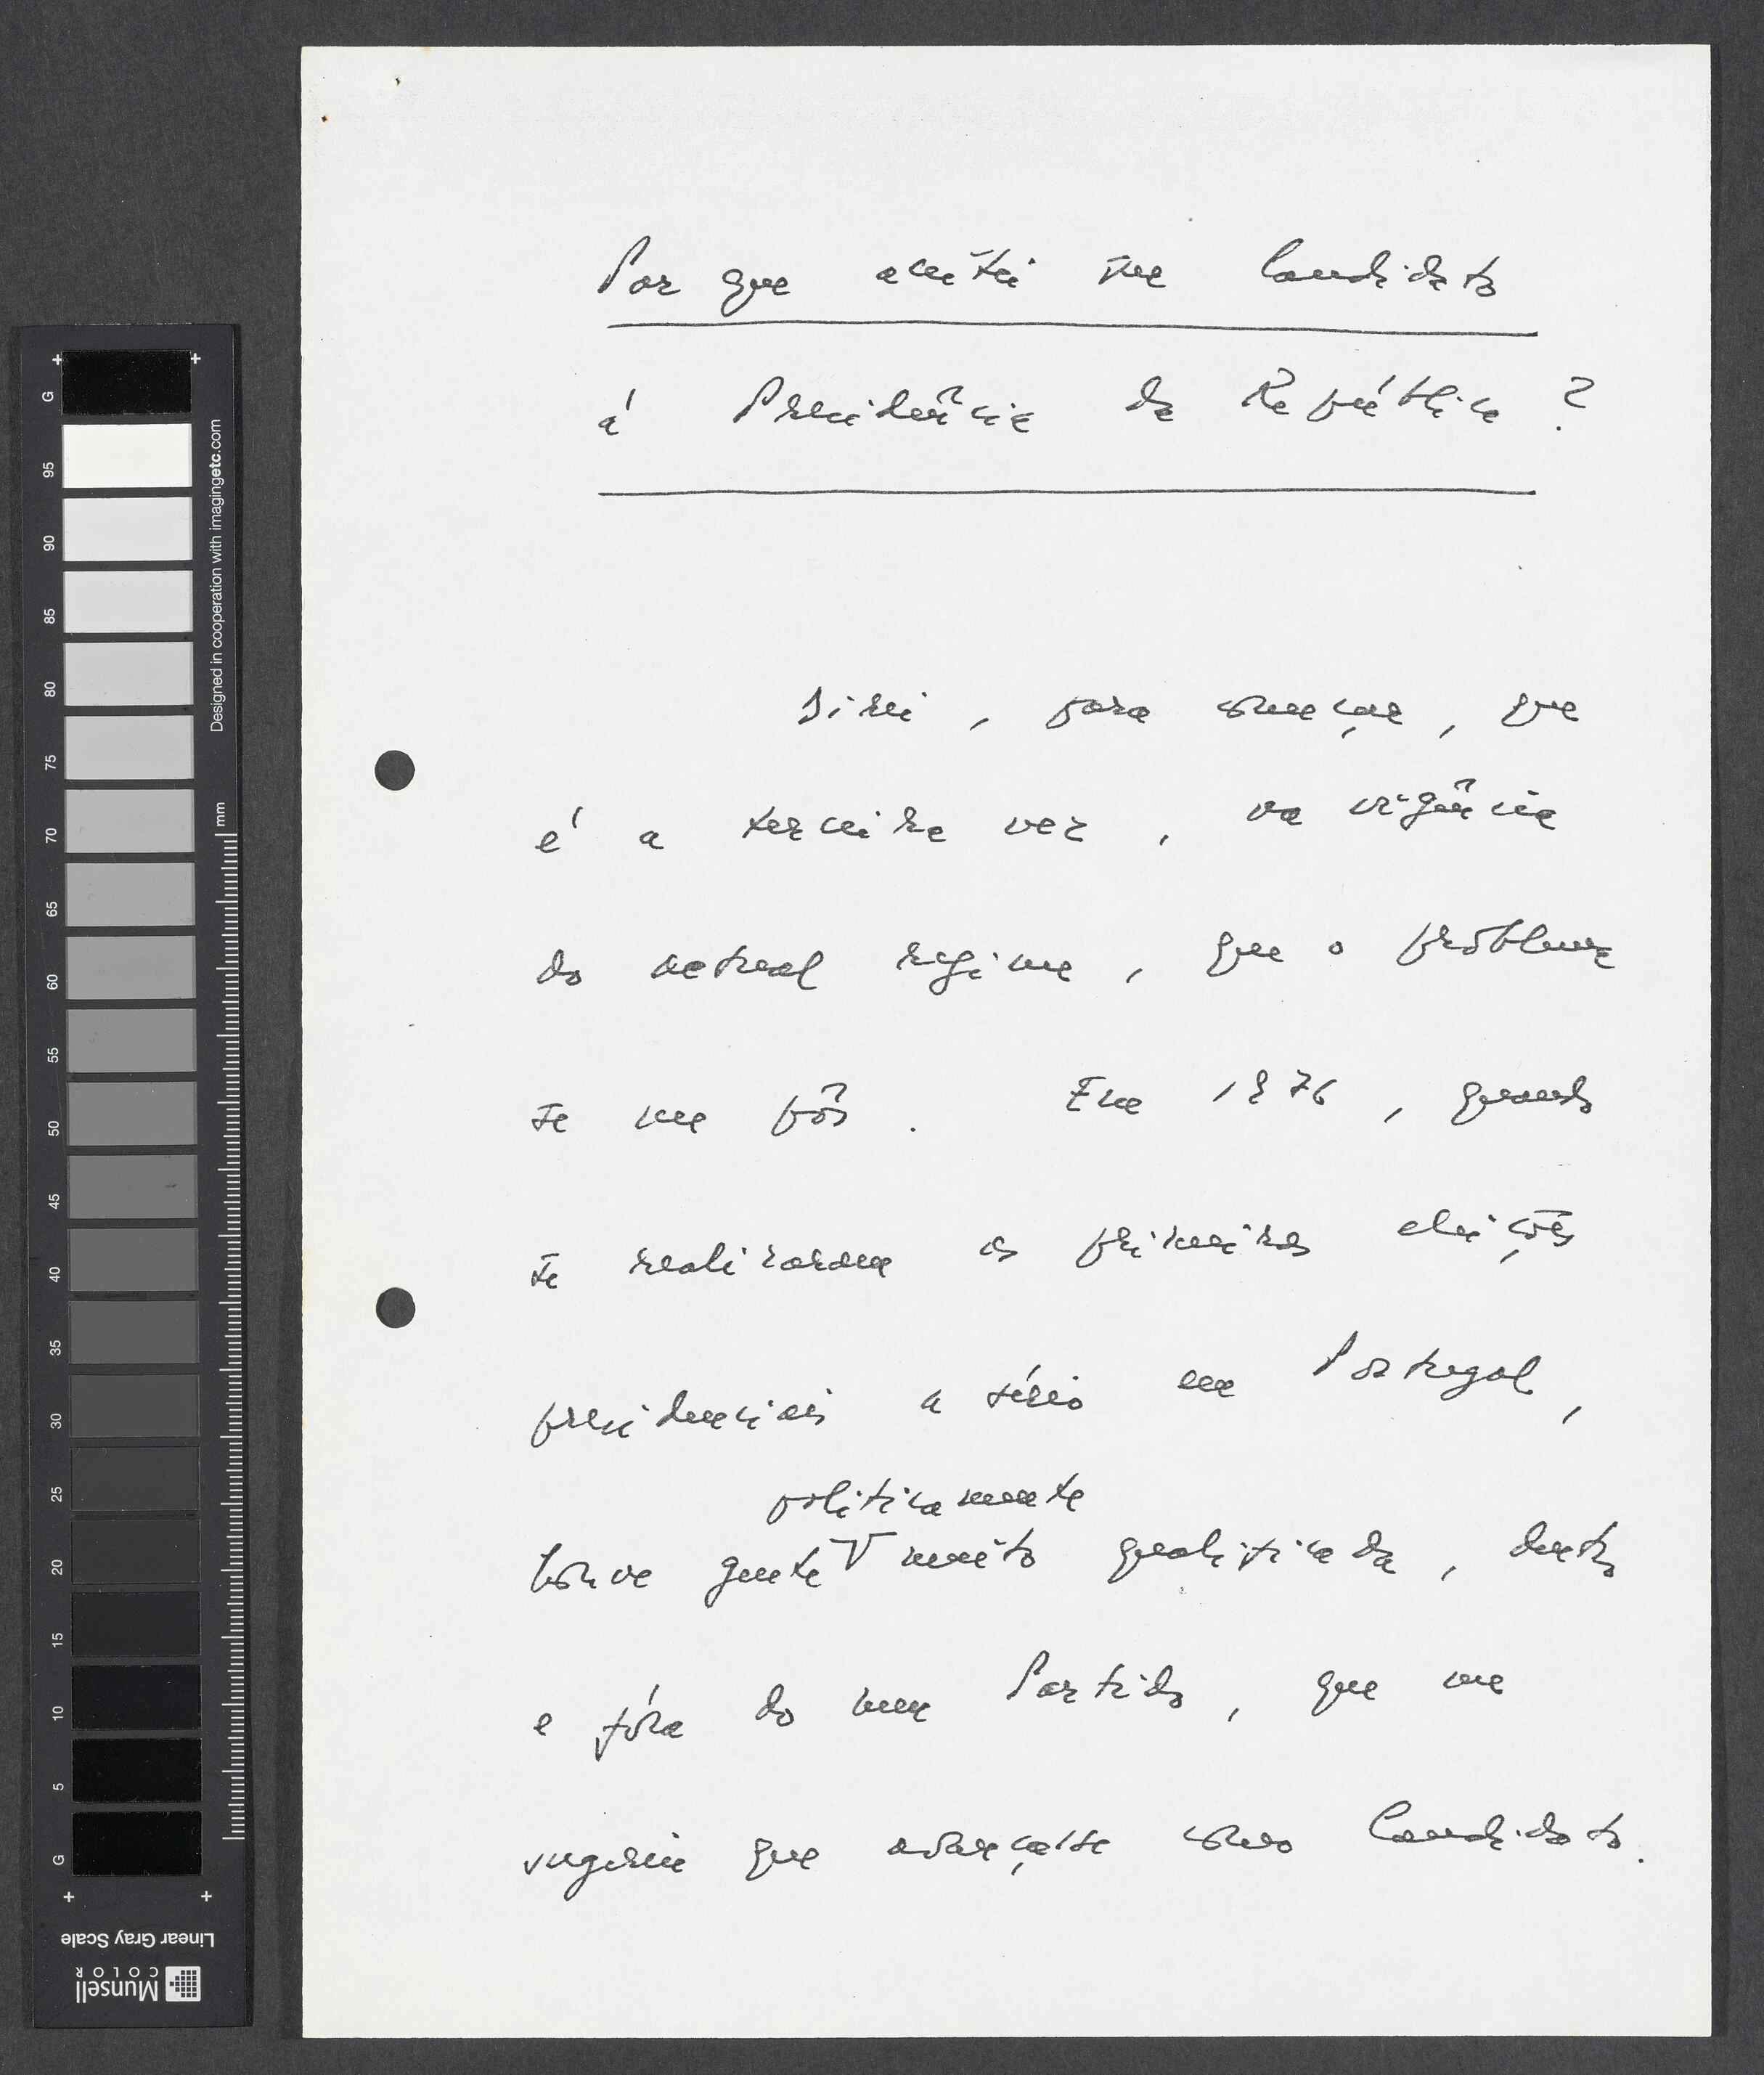 Por que aceitei ser Candidato
á Presidência da República ?
Direi, para começar, que
é a terceira vez, na vigência
do actual regime, que o problema
se me pôs. Em 1976, quando
se realizaram as primeiras eleições
presidenciais a sério em Portugal,
politicamente
houve gente V muito qualificada, dentro
e fóra do meu Partido, que me
sugeriu que avançasse como Candidato.
G
95
90
85
80
75
70
65
60
55
50
45
40
35
30
25
20
15
10
5
G
mm
Designed in cooperation with imagingetc.com
Linear Gray Scale
Munsell
COLOR